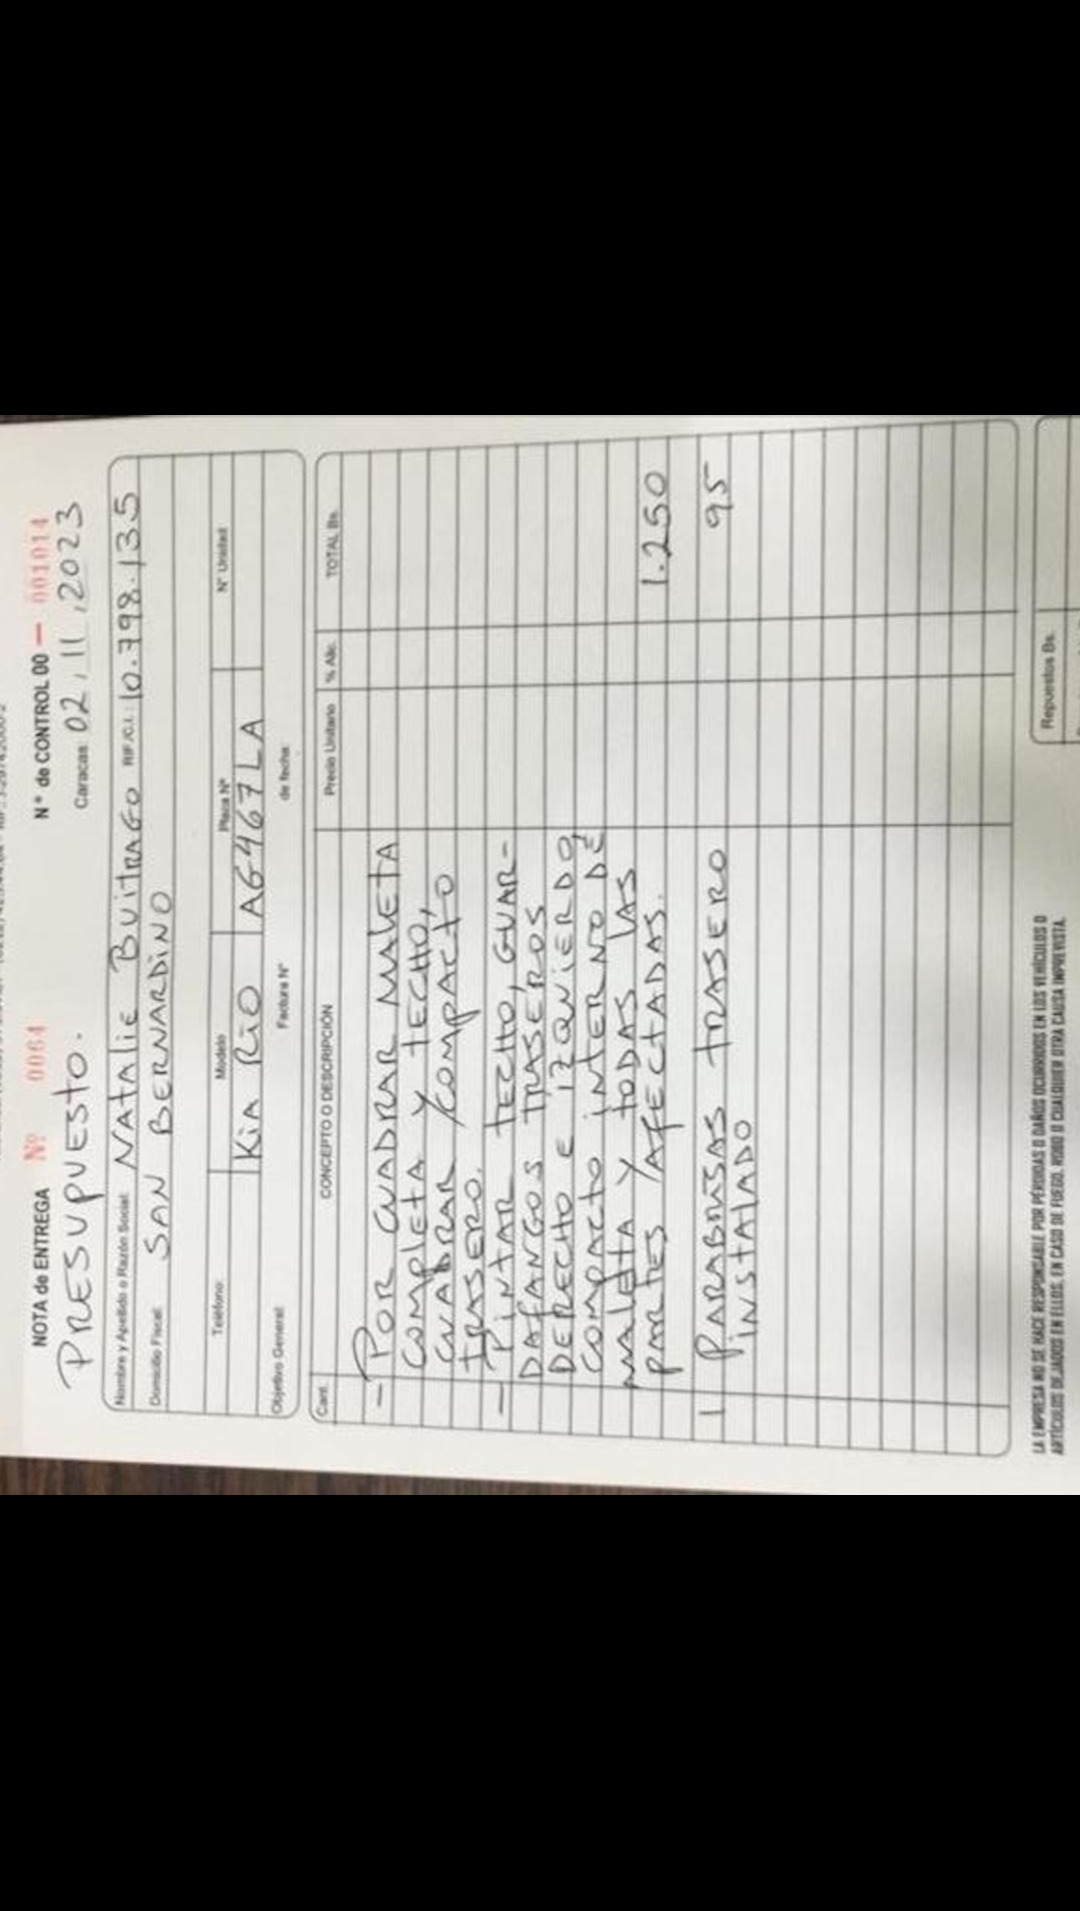 NOTA de ENTREGA Nº 0064 N° de CONTROL 00 — 001014
PRESUPUESTO. Caracas 02, 11, 2023
Nombre y Apellido o Razón Social: NATALIE BUITRAGO RIF./C.I.: 10.798.135
Domicilio Fiscal: SAN BERNARDINO
Teléfono: Modelo Placa N° N° Unidad
KIA RIO AG467LA
Objetivo General: Factura N° de fecha
Cant. CONCEPTO O DESCRIPCIÓN Precio Unitario % Alic. TOTAL Bs.
— POR CUADRAR MALETA
COMPLETA Y TECHO,
CUADRAR COMPACTO
TRASERO.
— PINTAR TECHO, GUAR-
DAFANGOS TRASEROS
DERECHO E IZQUIERDO,
COMPACTO INTERNO DE
MALETA Y TODAS LAS
PARTES AFECTADAS. 1.250
1 PARABRISAS TRASERO 95
INSTALADO
LA EMPRESA NO SE HACE RESPONSABLE POR PÉRDIDAS O DAÑOS OCURRIDOS EN LOS VEHÍCULOS O
ARTÍCULOS DEJADOS EN ELLOS, EN CASO DE FUEGO, ROBO O CUALQUIER OTRA CAUSA IMPREVISTA.
Repuestos Bs.